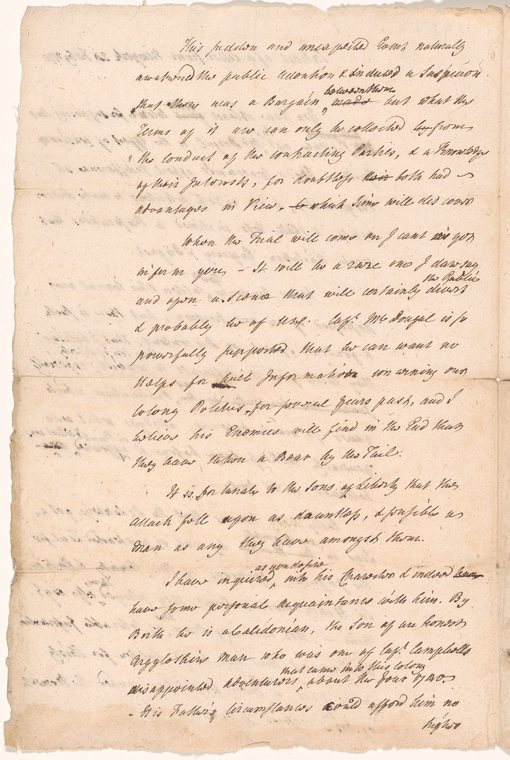 This sudden and unexpected Event naturally
awakened the public attention & induced a Suspicion
between them
that there was a Bargain, made but what the
Terms of it are can only be collected from
the conduct of the contracting Parties, & a Knowledge
of their Interests, for doubtless both had
advantages in View, which time will discover
When the Trial will come on I cant yet
inform you, - It will be a rare one I dare say
the Public
and open a Scene that will certainly divert
& probably be of use. Capt. McDougal is so
powerfully supported that he can want no
Helps for Information concerning our
colony Politics, for several years past, and I
believe his Enemies will find in the End that
they have taken a Bear by the Tail.
It is fortunate to the Sons of Liberty that the
attack fell upon as dauntless, & sensible a
man as any they have amongst them.
as you desire
I have inquired, into his Character & indeed
have some personal acquaintance with him. By
Birth he is a Caledonian, the Son of an honest
Argyleshire man who was one of Capt. Campbells
that came into this Colony
disappointed Adventurers, about the Year 1740.
- His Father's Circumstances could afford him no
higher